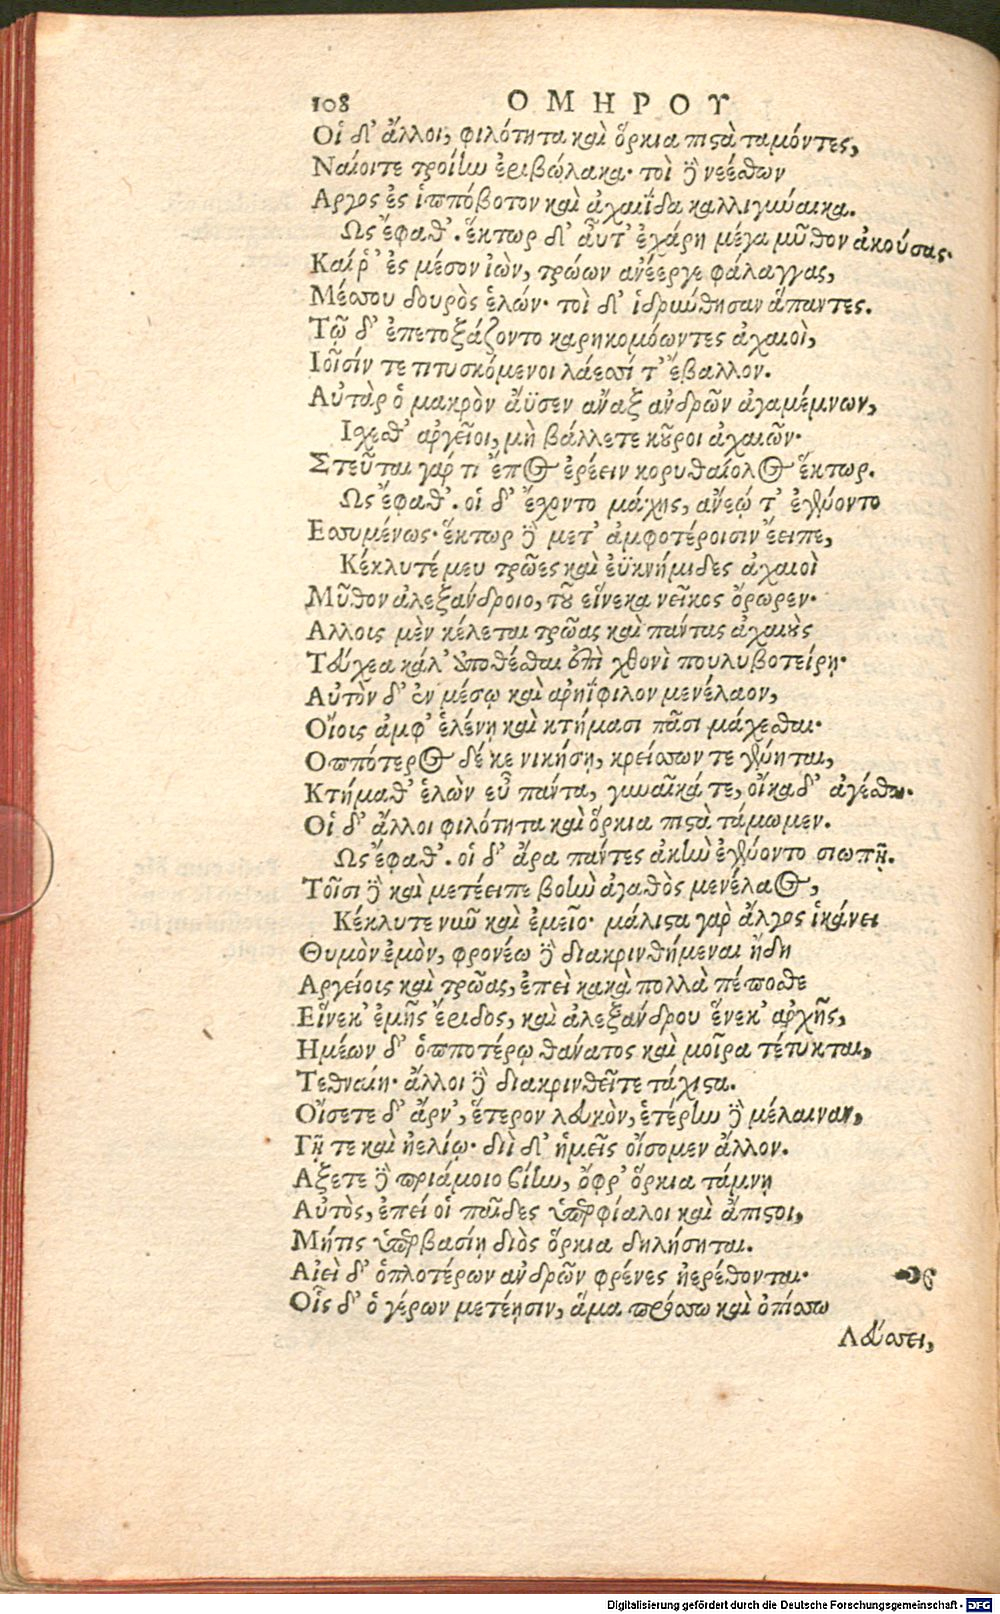 108 ΟΜΗΡΟΥ
Οἱ δ' ἄλλοι, φιλότητα καὶ ὅρκια πιστὰ ταμόντες,
Ναίοιτε τροίην ἐριβώλακα· τοὶ δὲ νεέσθων
Αργος ἐς ἱππόβοτον καὶ ἀχαιΐδα καλλιγύναικα.
Ως ἔφαθ'. ἕκτωρ δ' αὖτ' ἐχάρη μέγα μῦθον ἀκούσας·
Καί ῥ' ἐς μέσον ἰὼν, τρώων ἀνέεργε φάλαγγας,
Μέσσου δουρὸς ἑλών· τοὶ δ' ἱδρύνθησαν ἅπαντες.
Τῷ δ' ἐπετοξάζοντο καρηκομόωντες ἀχαιοὶ,
Ιοῖσίν τε τιτυσκόμενοι λάεσσί τ' ἔβαλλον.
Αὐτὰρ ὁ μακρὸν ἄϋσεν ἄναξ ἀνδρῶν ἀγαμέμνων,
Ισχεσθ' ἀργεῖοι, μὴ βάλλετε κοῦροι ἀχαιῶν·
Στεῦται γάρ τι ἔπος ἐρέειν κορυθαίολος ἕκτωρ.
Ως ἔφαθ'. οἱ δ' ἔσχοντο μάχης, ἄνεῴ τ' ἐγένοντο
Εσσυμένως· ἕκτωρ δὲ μετ' ἀμφοτέροισιν ἔειπε,
Κέκλυτέ μευ τρῶες καὶ ἐϋκνήμιδες ἀχαιοὶ
Μῦθον ἀλεξάνδροιο, τοῦ εἵνεκα νεῖκος ὄρωρεν·
Αλλοις μὲν κέλεται τρῶας καὶ πάντας ἀχαιοὺς
Τεύχεα κάλ' ἀποθέσθαι ἐπὶ χθονὶ πουλυβοτείρῃ·
Αὐτὸν δ' ἐν μέσῳ καὶ ἀρηΐφιλον μενέλαον,
Οἴοις ἀμφ' ἑλένῃ καὶ κτήμασι πᾶσι μάχεσθαι·
Οππότερος δέ κε νικήσῃ, κρείσσων τε γένηται,
Κτήμαθ' ἑλὼν εὖ πάντα, γυναῖκά τε, οἴκαδ' ἀγέσθω·
Οἱ δ' ἄλλοι φιλότητα καὶ ὅρκια πιστὰ τάμωμεν.
Ως ἔφαθ'. οἱ δ' ἄρα πάντες ἀκὴν ἐγένοντο σιωπῇ.
Τοῖσι δὲ καὶ μετέειπε βοὴν ἀγαθὸς μενέλαος,
Κέκλυτε νῦν καὶ ἐμεῖο· μάλιστα γὰρ ἄλγος ἱκάνει
Θυμὸν ἐμὸν, φρονέω δὲ διακρινθήμεναι ἤδη
Αργείοις καὶ τρῶας, ἐπεὶ κακὰ πολλὰ πέποσθε
Εἵνεκ' ἐμῆς ἔριδος, καὶ ἀλεξάνδρου ἕνεκ' ἀρχῆς,
Ημέων δ' ὁπποτέρῳ θάνατος καὶ μοῖρα τέτυκται,
Τεθναίη· ἄλλοι δὲ διακρινθεῖτε τάχιστα.
Οἴσετε δ' ἄρν', ἕτερον λευκὸν, ἑτέρην δὲ μέλαιναν,
Γῇ τε καὶ ἠελίῳ· διὶ δ' ἡμεῖς οἴσομεν ἄλλον.
Αξετε δὲ πριάμοιο βίην, ὄφρ' ὅρκια τάμνῃ
Αὐτὸς, ἐπεί οἱ παῖδες ὑπερφίαλοι καὶ ἄπιστοι,
Μήτις ὑπερβασίῃ διὸς ὅρκια δηλήσηται.
Αἰεὶ δ' ὁπλοτέρων ἀνδρῶν φρένες ἠερέθονται·
Οἷς δ' ὁ γέρων μετέῃσιν, ἅμα πρόσσω καὶ ὀπίσσω
Λεύσσει,
Digitalisierung gefördert durch die Deutsche Forschungsgemeinschaft - DFG